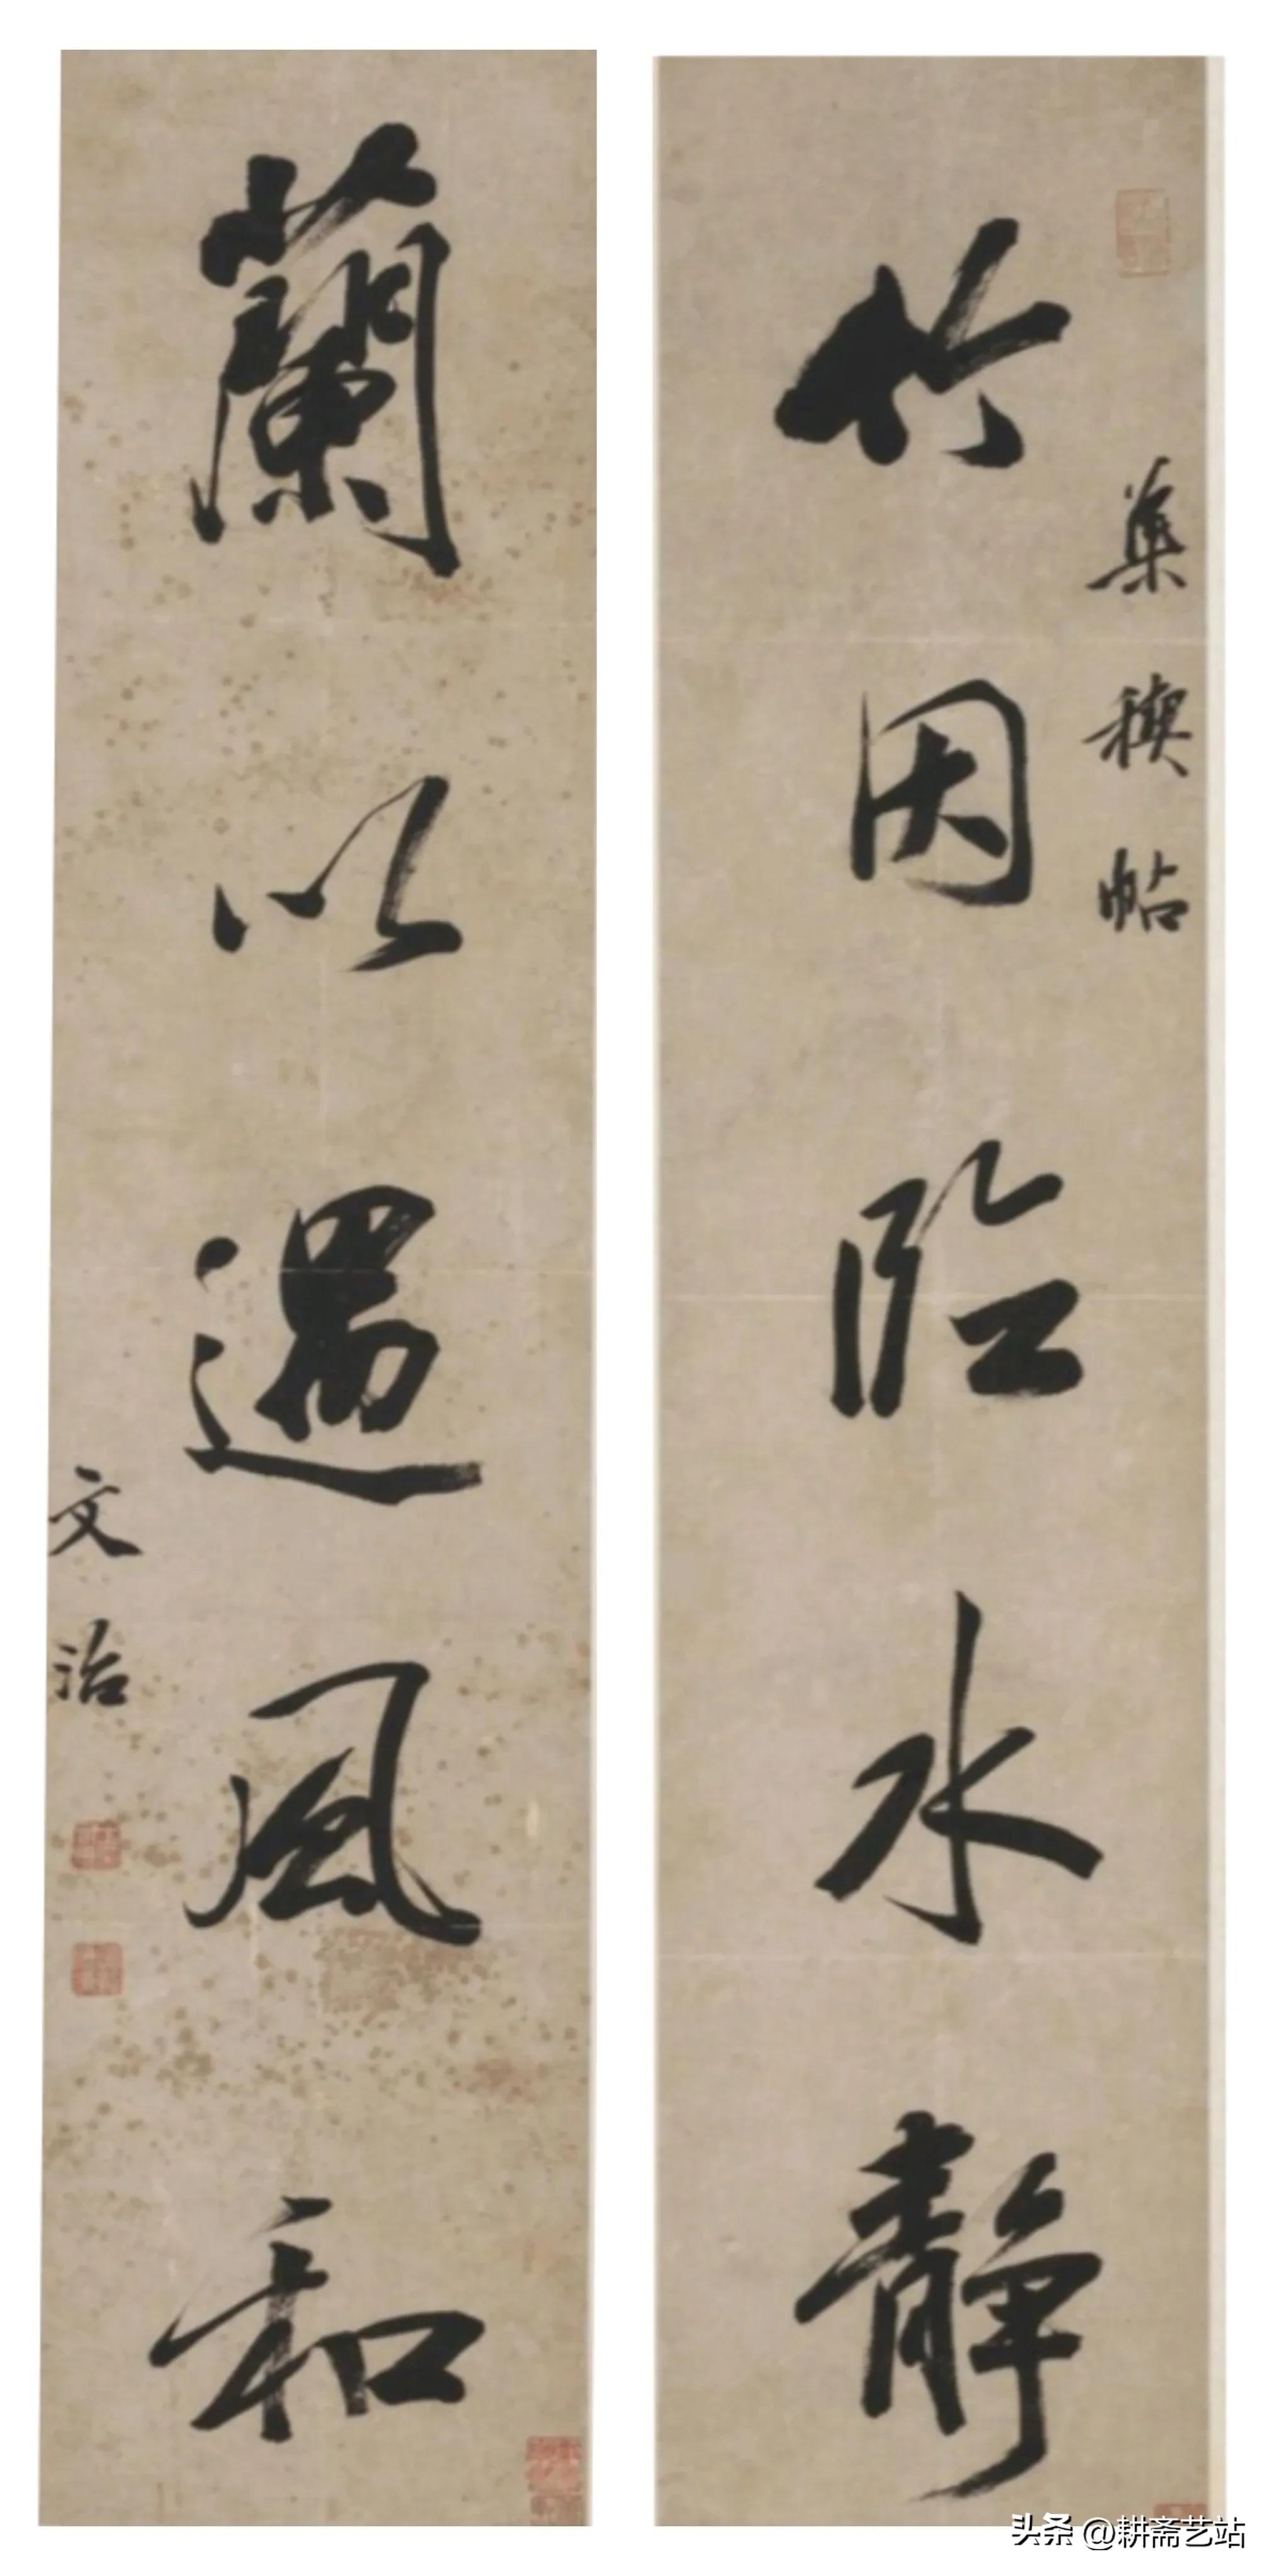 集禊帖
竹因临水静
蘭以遇風和
文治
头条 @耕斋艺站